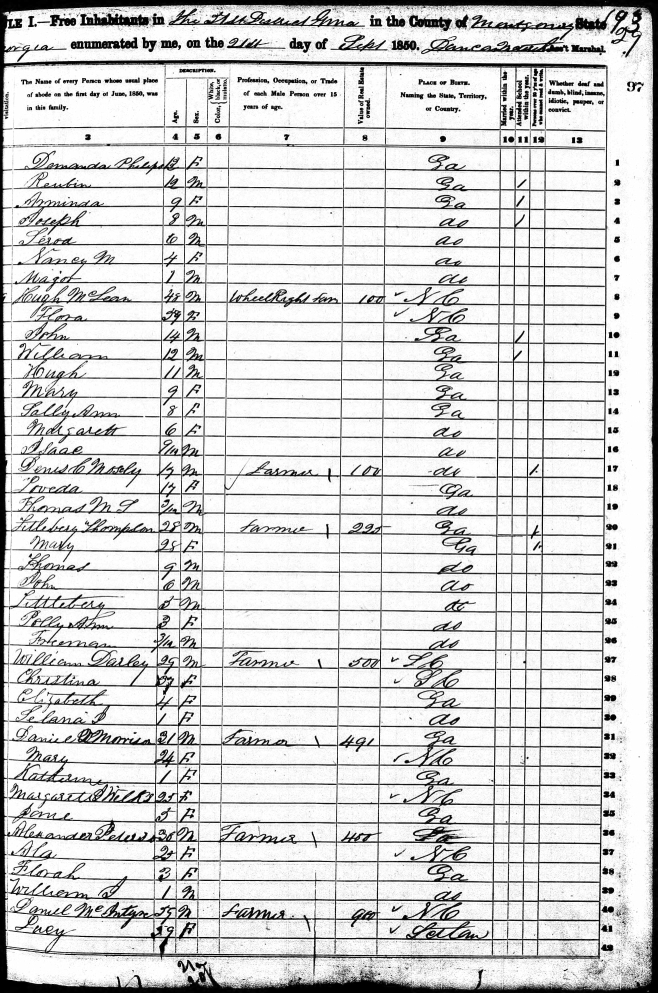 LE I.—Free Inhabitants in The 51st District Gma in the County of Montgomery State
orgia enumerated by me, on the 21st day of Sept 1850. Ass't Marshal.
193
97
DESCRIPTION.
The Name of every Person whose usual place of abode on the first day of June, 1850, was in this family.
Age.
Sex.
Color, White, black, or mulatto.
Profession, Occupation, or Trade of each Male Person over 15 years of age.
Value of Real Estate owned.
PLACE OF BIRTH. Naming the State, Territory, or Country.
Married within the year.
Attended School within the year.
Persons over 20 years of age who cannot read & write.
Whether deaf and dumb, blind, insane, idiotic, pauper, or convict.
3 4 5 6 7 8 9 10 11 12 13
Demanda Philips F Ga 1
Reubin 12 M Ga 1 2
Arminda 9 F Ga 1 3
Joseph 8 M do 1 4
6 M do 5
Nancy M 4 F do 6
1 M do 7
Hugh McLean 48 M WheelRight Far 100 N C 8
Flora 39 F N C 9
John 14 M Ga 1 10
William 12 M Ga 1 11
Hugh 11 M Ga 12
Mary 9 F Ga 13
Sally Ann 8 F Ga 14
Margarett 6 F do 15
Isaac 9/12 M do 16
Denis C Mosely 19 M Farmer 1 100 do 1 17
Loveda 17 F Ga 18
Thomas M 3/12 M do 19
Littleberg Thompson 28 M Farmer 1 225 Ga 1 20
Mary 28 F Ga 1 21
Thomas 9 M do 22
John 6 M do 23
Littleberg 5 M do 24
Polly Ann 3 F do 25
Freeman 3/12 M do 26
William Darley 29 M Farmer 1 500 S C 27
Christina 37 F S C 28
Elizabeth 4 F Ga 29
1 F do 30
Daniel Morrison 31 M Farmer 1 491 Ga 31
Mary 24 F N C 32
Katherine 1 F Ga 33
Margarett Wilks 25 F N C 34
5 F Ga 35
Alexander Peterson 38 M Farmer 1 400 Ga 36
Ala 25 F N C 37
Florah 3 F Ga 38
William 1 M do 39
Daniel McIntyre 59 M Farmer 1 900 N C 40
Lucy 59 F Scotlan 41
42